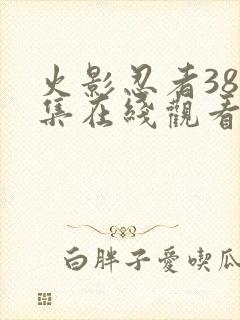 火影忍者38
集在綫觀看
白胖子愛喫瓜